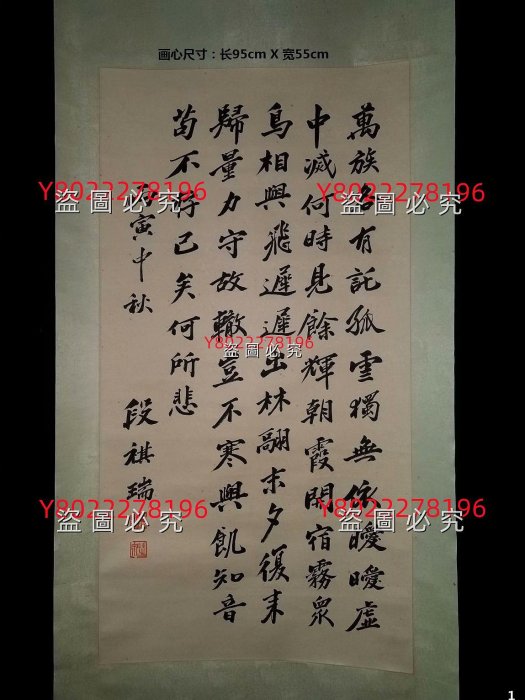 画心尺寸：长95cm X 宽55cm
萬族各有託孤雲獨無依曖曖虛
中滅何時見餘輝朝霞開宿霧眾
鳥相與飛遲遲出林翮未夕復來
歸量力守故轍豈不寒與飢知音
苟不存已矣何所悲
寅中秋
段祺瑞
Y8022278196
盜圖必究
Y8022278196
盜圖必究
Y8022278196
盜圖必究
Y8022278196
盜圖必究
Y8022278196
盜圖必究
1